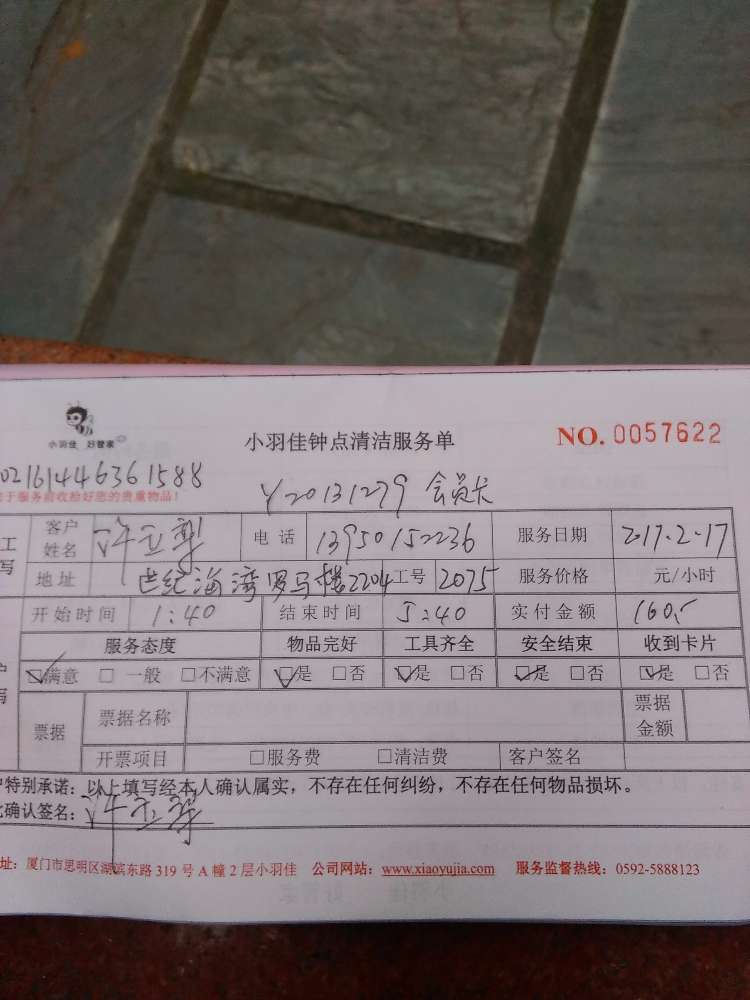 小羽佳 好管家
小羽佳钟点清洁服务单
NO. 0057622
0216144636 1588
Y20131279 会员卡
于服务前收拾好您的贵重物品!
工
写
客户姓名 许 电话 13950152236 服务日期 2017.2.17
地址 世纪海湾罗马楼2204 工号 2075 服务价格 元/小时
开始时间 1:40 结束时间 5:40 实付金额 160
服务态度 物品完好 工具齐全 安全结束 收到卡片
☑满意 □一般 □不满意 ☑是 □否 ☑是 □否 ☑是 □否 ☑是 □否
票据 票据名称 票据金额
开票项目 □服务费 □清洁费 客户签名
户特别承诺:以上填写经本人确认属实,不存在任何纠纷,不存在任何物品损坏。
确认签名: 许
址:厦门市思明区湖滨东路 319 号 A 幢 2 层小羽佳 公司网站:www.xiaoyujia.com 服务监督热线:0592-5888123